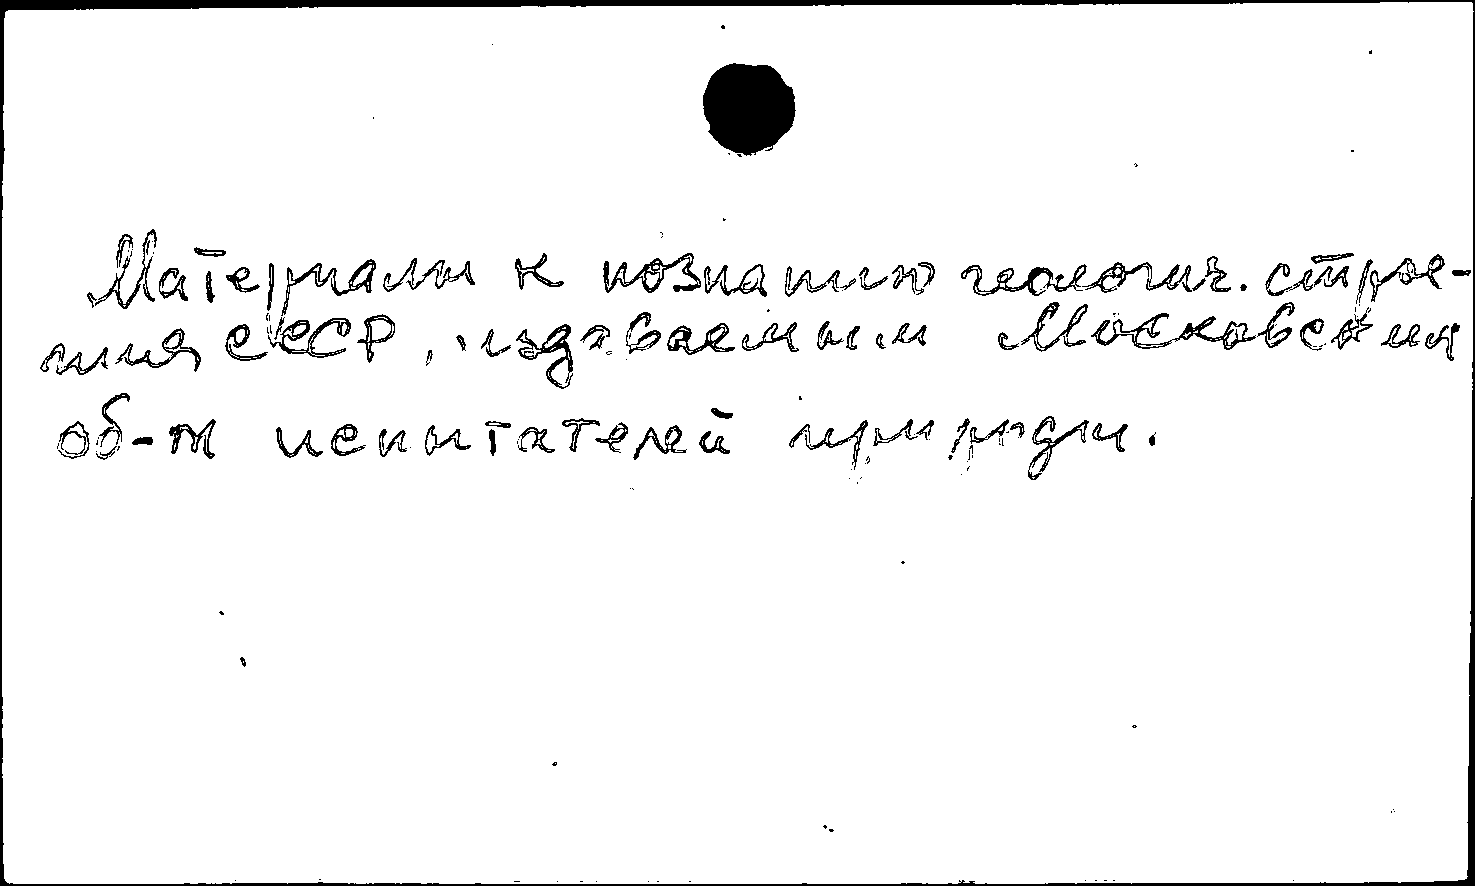 Материалы к познанию геологич. строе-
ния СССР, издаваемым Московским
об-м испытателей природы.